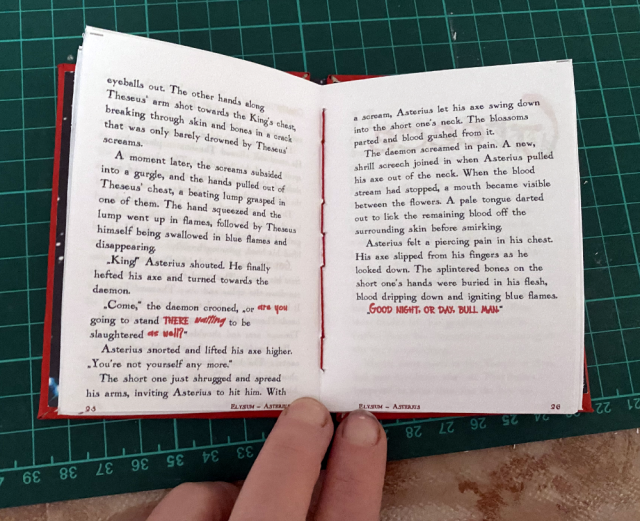 eyeballs out. The other hands along
Theseus' arm shot towards the King's chest,
breaking through skin and bones in a crack
that was only barely drowned by Theseus'
screams.
A moment later, the screams subsided
into a gurgle, and the hands pulled out of
Theseus' chest, a beating lump grasped in
one of them. The hand squeezed and the
lump went up in flames, followed by Theseus
himself being swallowed in blue flames and
disappearing.
„King!" Asterius shouted. He finally
hefted his axe and turned towards the
daemon.
„Come," the daemon crooned, „or are you
going to stand THERE waiting to be
slaughtered as well?"
Asterius snorted and lifted his axe higher.
„You're not yourself any more."
The short one just shrugged and spread
his arms, inviting Asterius to hit him. With
25
Elysium – Asterius
a scream, Asterius let his axe swing down
into the short one's neck. The blossoms
parted and blood gushed from it.
The daemon screamed in pain. A new,
shrill screech joined in when Asterius pulled
his axe out of the neck. When the blood
stream had stopped, a mouth became visible
between the flowers. A pale tongue darted
out to lick the remaining blood off the
surrounding skin before smirking.
Asterius felt a piercing pain in his chest.
His axe slipped from his fingers as he
looked down. The splintered bones on the
short one's hands were buried in his flesh,
blood dripping down and igniting blue flames.
„GOOD NIGHT, OR DAY, BULL MAN."
Elysium – Asterius
26
39 38 37 36 35 34 33 32
29 28 27 26 25 24 23 22 21